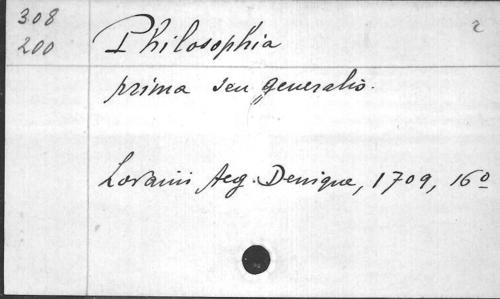 308
200
Philosophia
2
prima seu generalis.
Lovanii Aeg. Denique, 1709, 16º